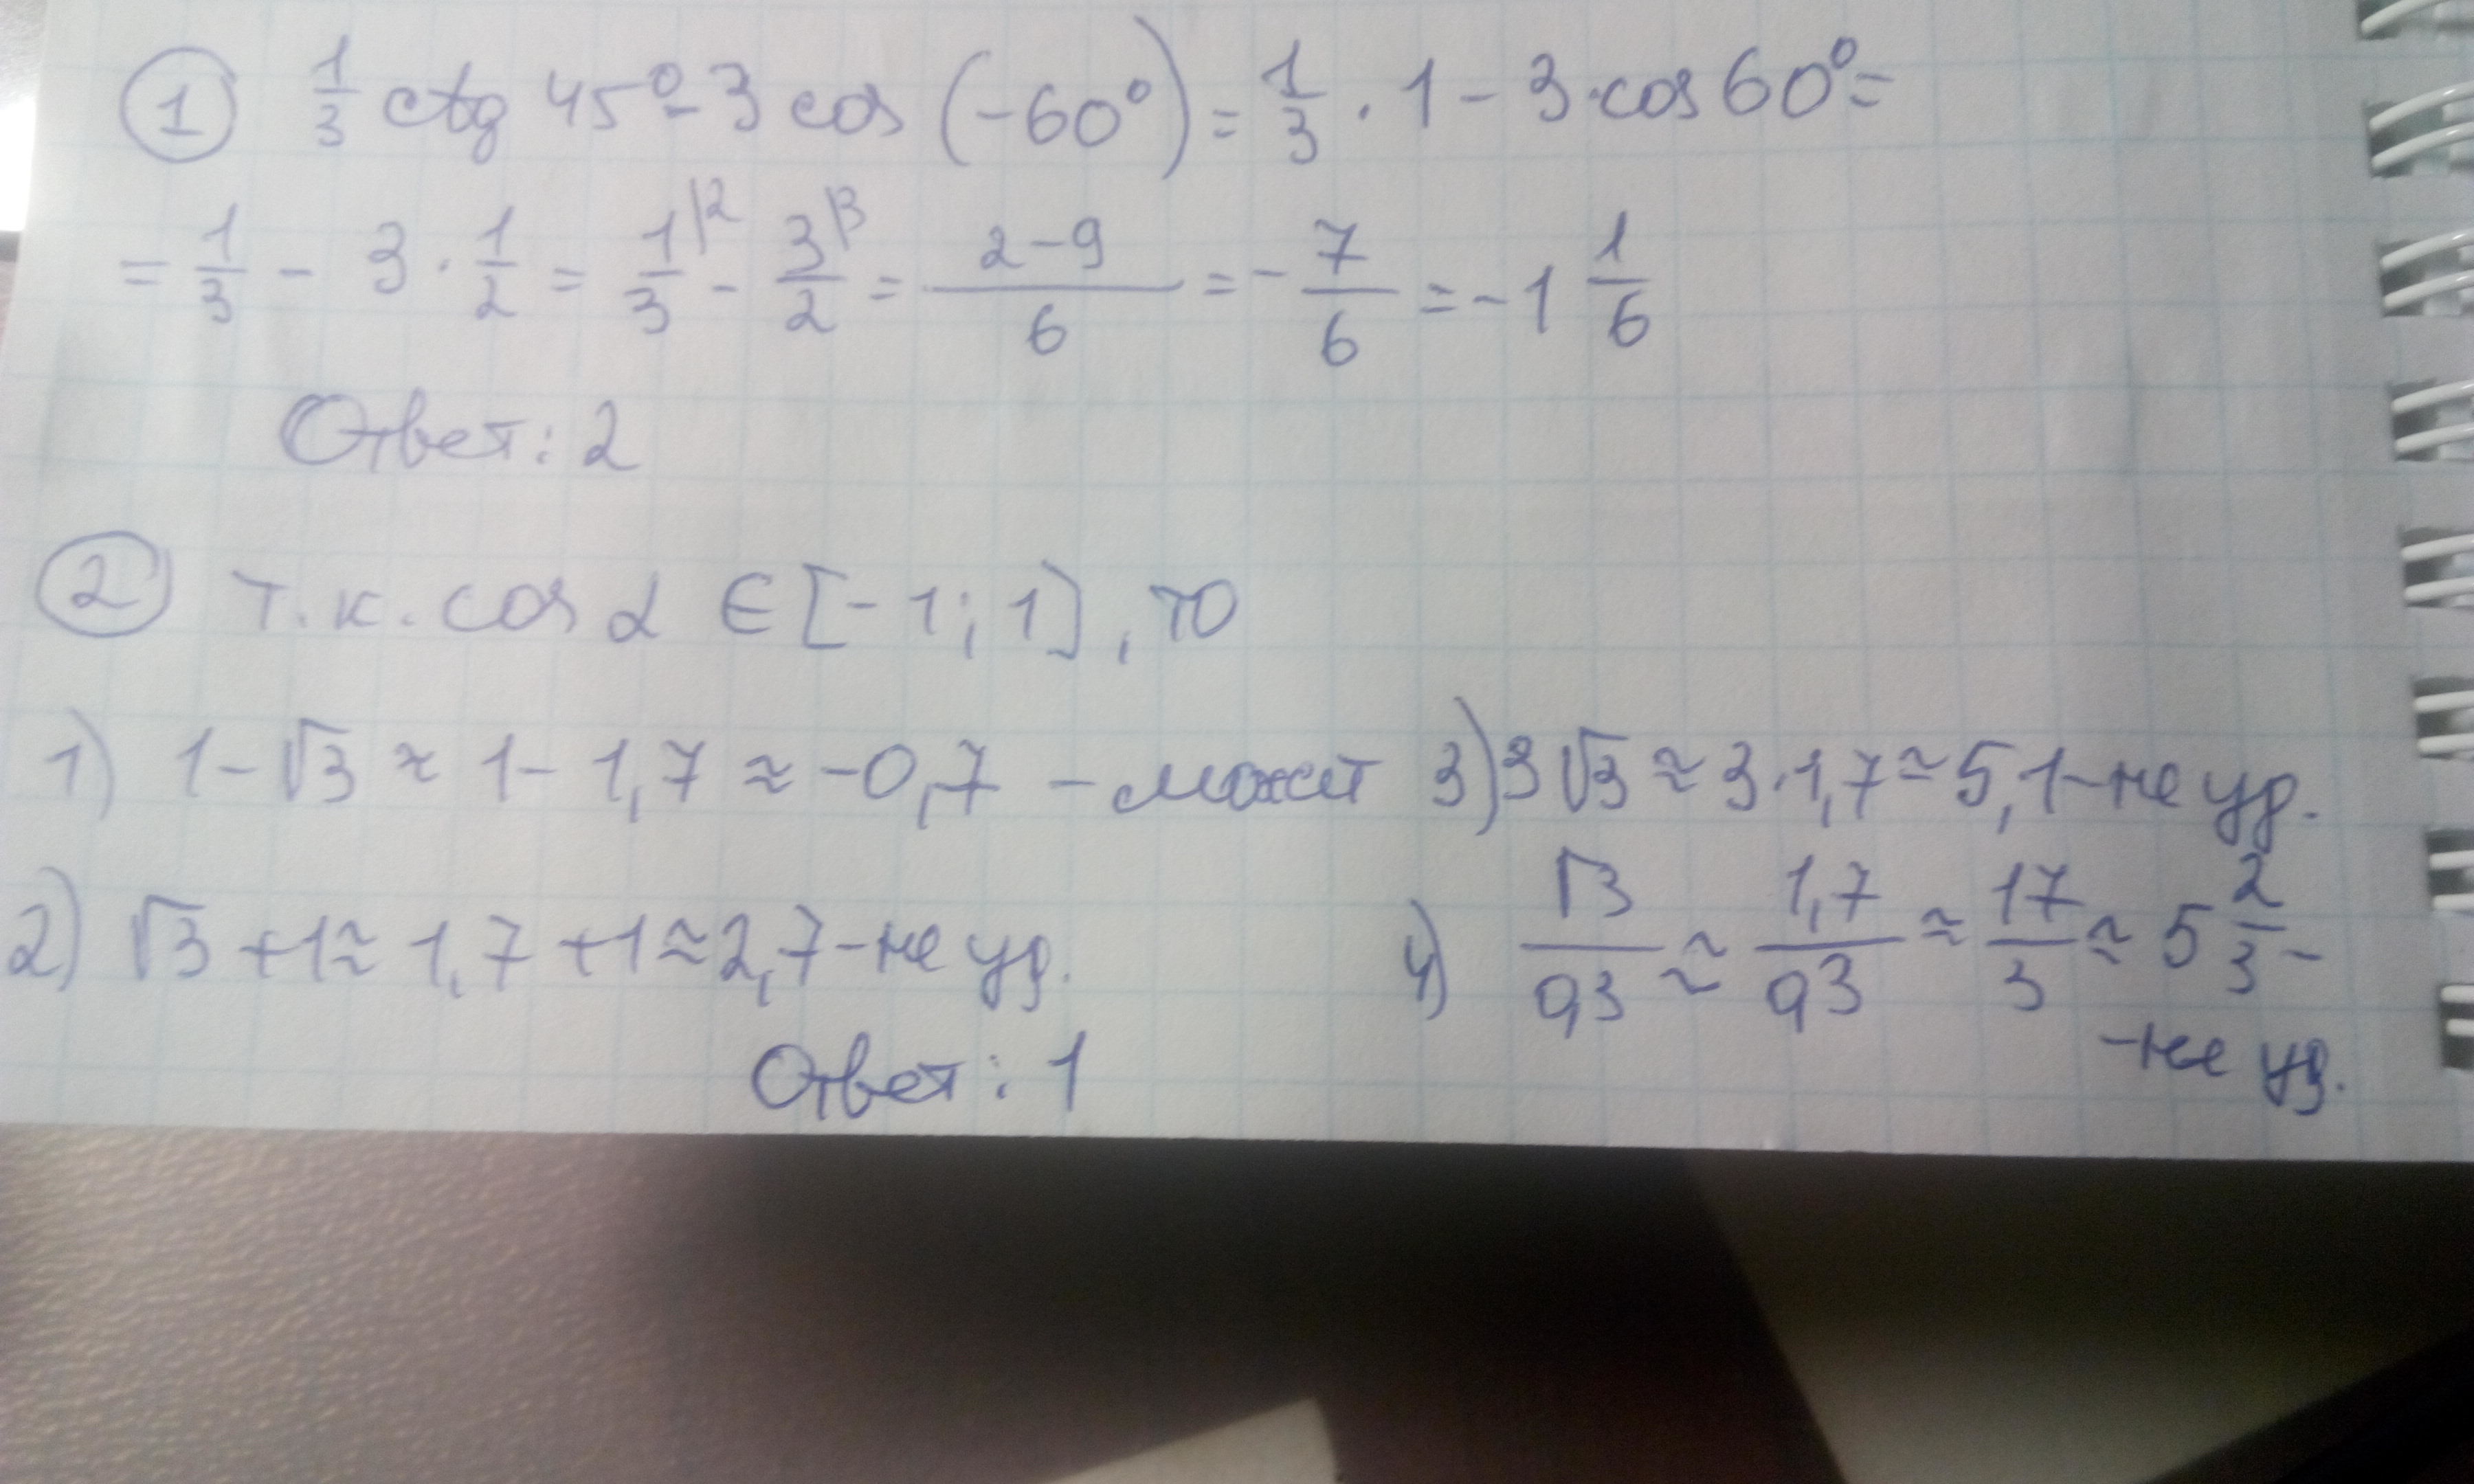 ① 1/3 ctg 45° - 3 cos (-60°) = 1/3 · 1 - 3 · cos 60° =
= 1/3 - 3 · 1/2 = 1/3 |2 - 3/2 |3 = (2-9)/6 = - 7/6 = -1 1/6
Ответ: 2
② т.к. cos α ∈ [-1; 1], то
1) 1-√3 ≈ 1 - 1,7 ≈ -0,7 - может
2) √3 + 1 ≈ 1,7 + 1 ≈ 2,7 - не уд.
3) 3√3 ≈ 3 · 1,7 ≈ 5,1 - не уд.
4) √3/0,3 ≈ 1,7/0,3 ≈ 17/3 ≈ 5 2/3 -
- не уд.
Ответ: 1